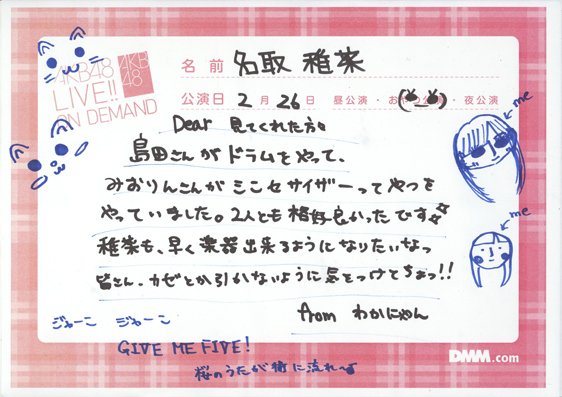 AKB48
LIVE!!
ON DEMAND
AKB
48
名前 名取 稚菜
公演日 2月26日 昼公演・おやつ公演・夜公演
Dear 見てくれた方。
島田さんがドラムをやって、
みおりんさんがミンセサイザーってやつを
やっていました。2人とも格好良かったです
稚菜も、早く楽器出来るようになりたいなっ
皆さん、カゼとか引かないように気をつけてちょっ!!
from わかにゃん
me
me
ジャーこ ジャーこ
GIVE ME FIVE!
桜のうたが街に流れ〜♪
DMM.com